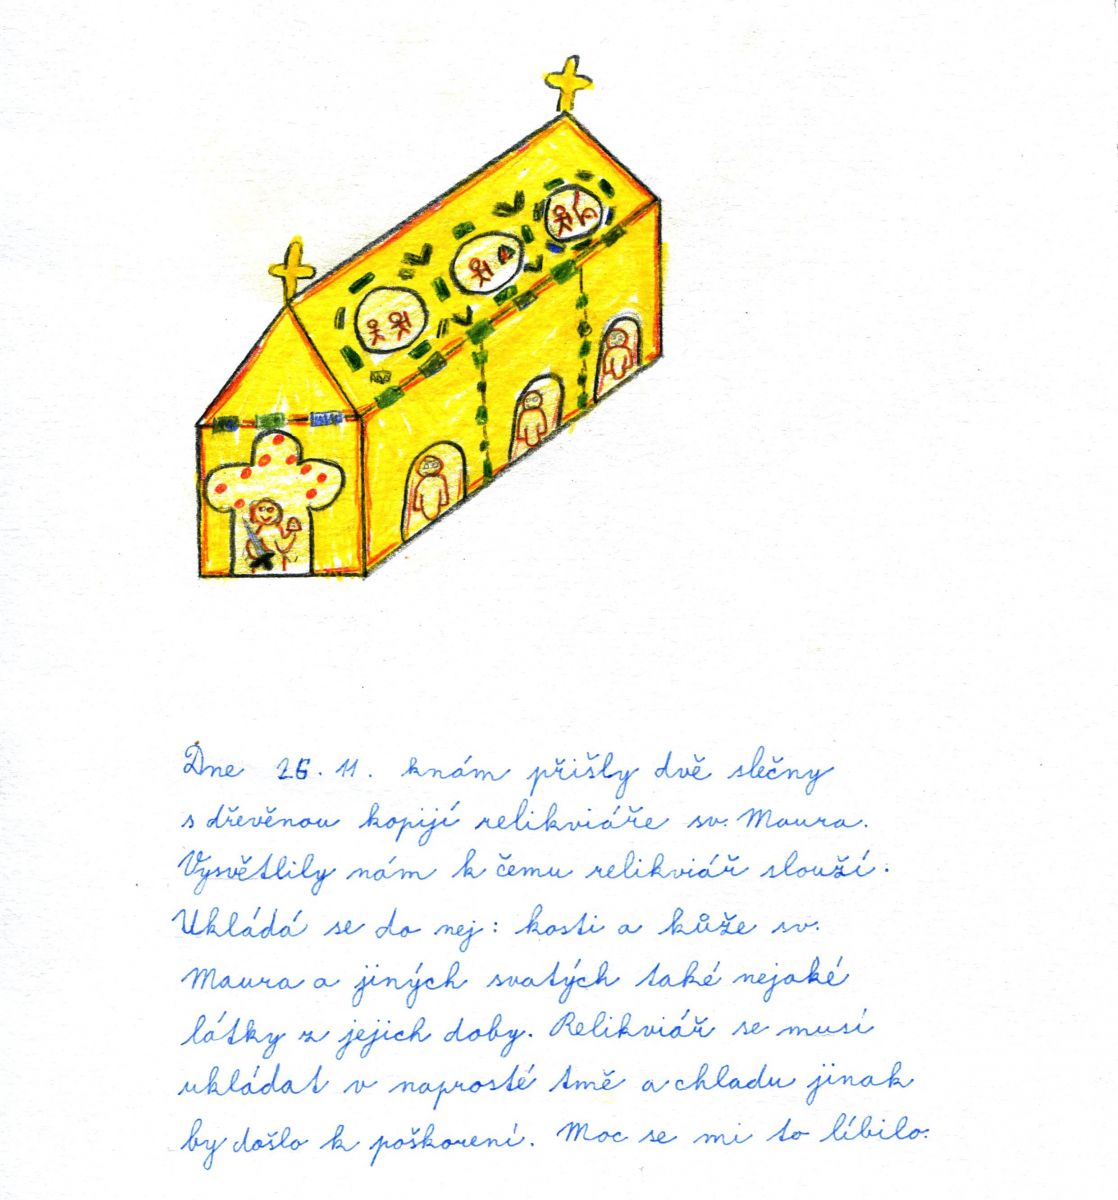 Dne 26. 11. knám přišly dvě slečny
s dřevěnou kopijí relikviáře sv. Maura.
Vysvětlily nám k čemu relikviář slouží.
Ukládá se do nej: kosti a kůže sv.
Maura a jiných svatých také nejaké
látky z jejich doby. Relikviář se musí
ukládat v naprosté tmě a chladu jinak
by došlo k poškorení. Moc se mi to líbilo.